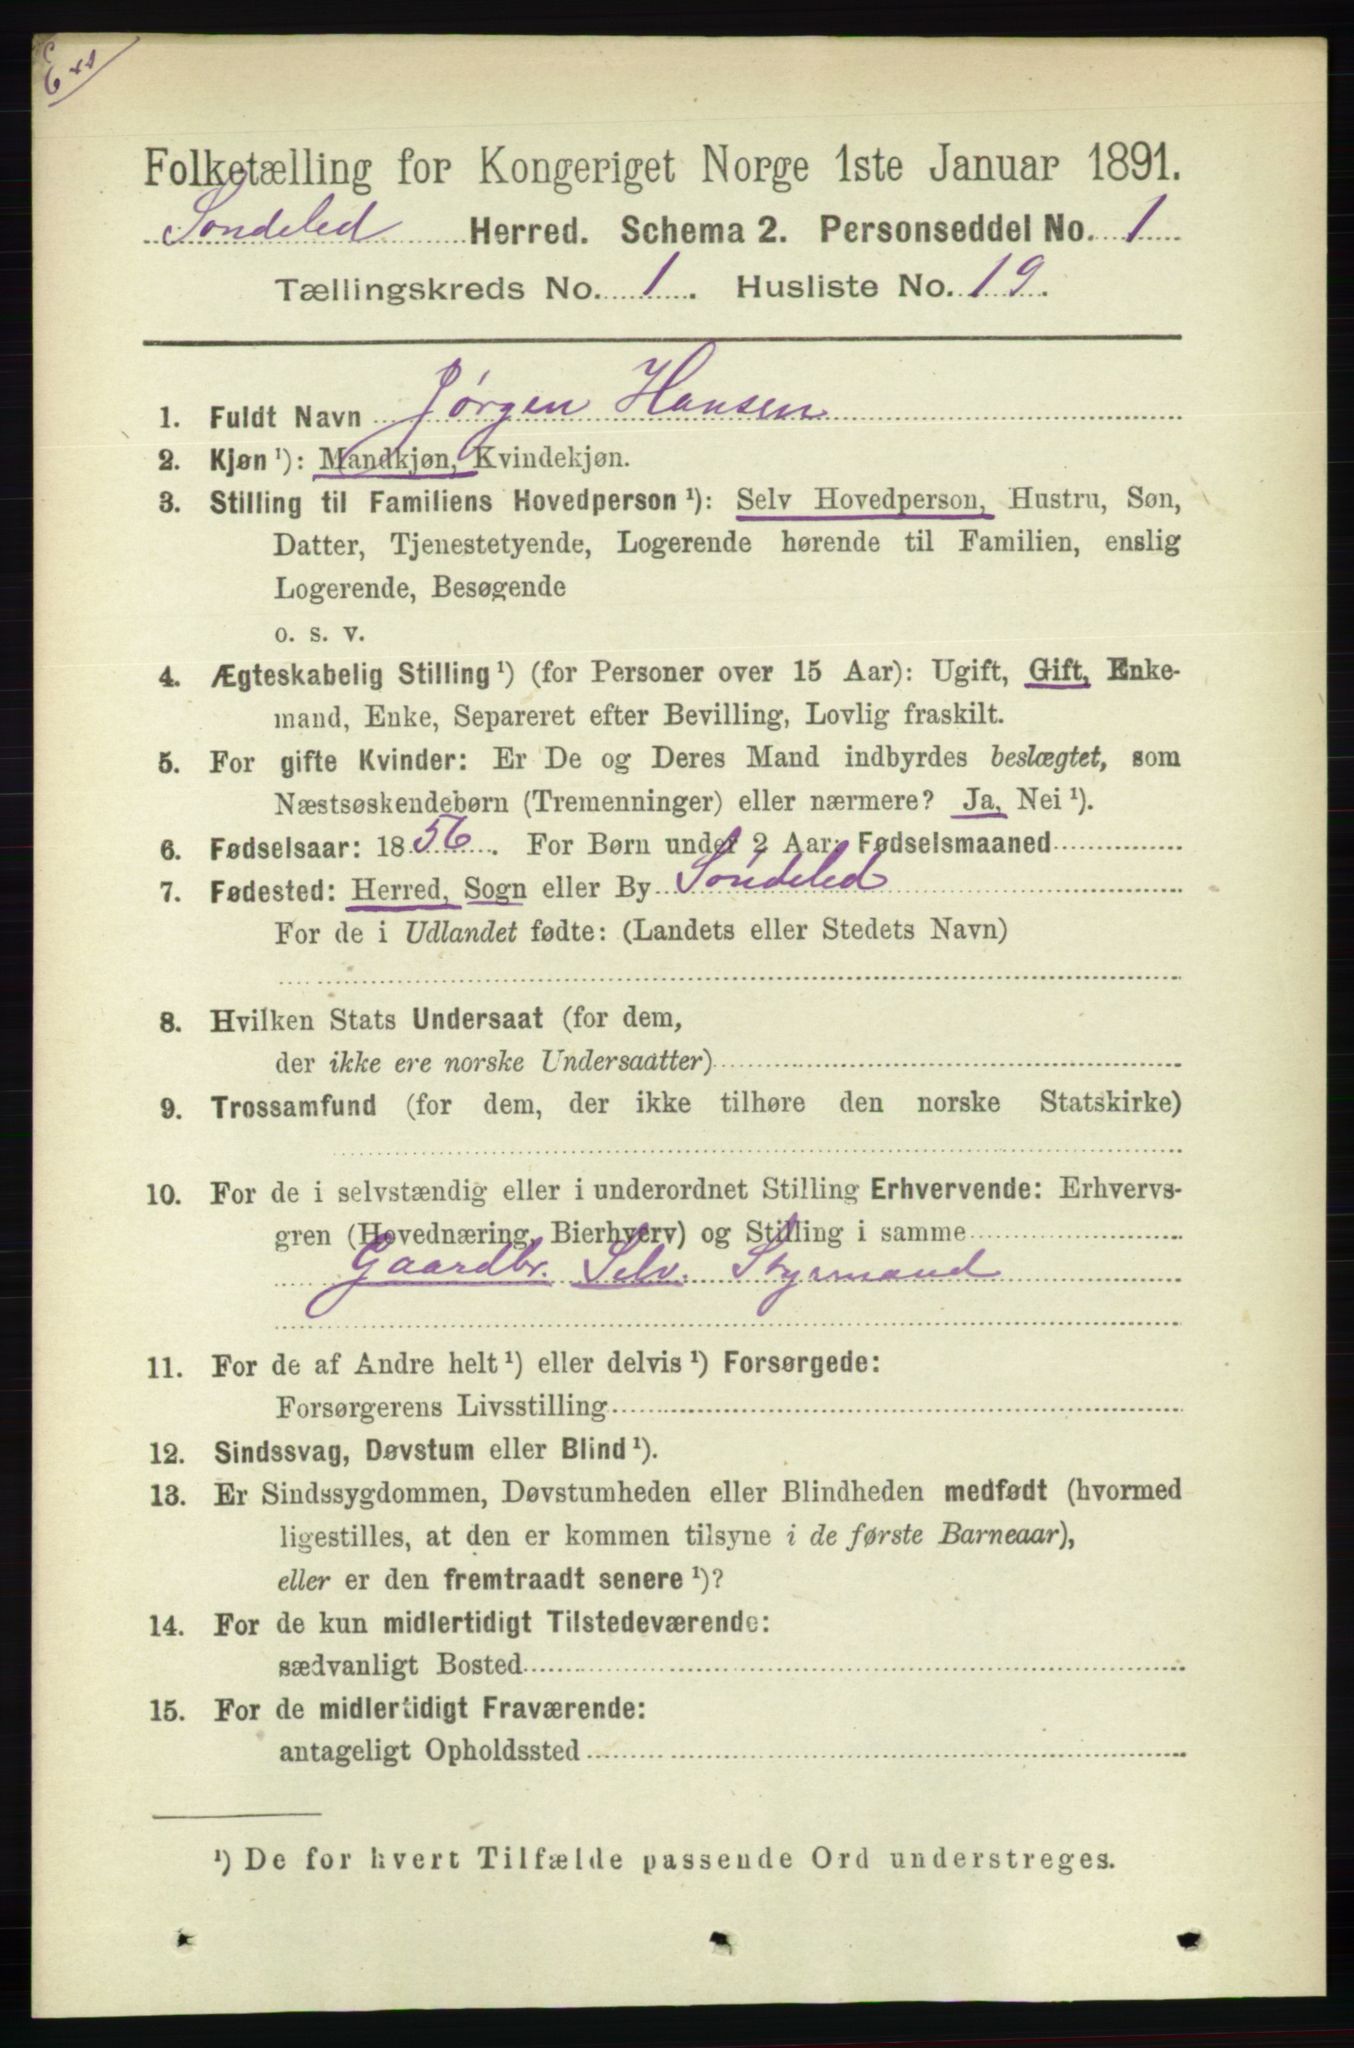 Folketælling for Kongeriget Norge 1ste Januar 1891.
Søndeled Herred. Schema 2. Personseddel No. 1
Tællingskreds No. 1. Husliste No. 19.
1. Fuldt Navn Jørgen Hansen
2. Kjøn ¹): Mandkjøn, Kvindekjøn.
3. Stilling til Familiens Hovedperson ¹): Selv Hovedperson, Hustru, Søn,
Datter, Tjenestetyende, Logerende hørende til Familien, enslig
Logerende, Besøgende
o. s. v.
4. Ægteskabelig Stilling ¹) (for Personer over 15 Aar): Ugift, Gift, Enke-
mand, Enke, Separeret efter Bevilling, Lovlig fraskilt.
5. For gifte Kvinder: Er De og Deres Mand indbyrdes beslægtet, som
Næstsøskendebørn (Tremenninger) eller nærmere? Ja, Nei ¹).
6. Fødselsaar: 1856. For Børn under 2 Aar: Fødselsmaaned
7. Fødested: Herred, Sogn eller By Søndeled
For de i Udlandet fødte: (Landets eller Stedets Navn)
8. Hvilken Stats Undersaat (for dem,
der ikke ere norske Undersaatter)
9. Trossamfund (for dem, der ikke tilhøre den norske Statskirke)
10. For de i selvstændig eller i underordnet Stilling Erhvervende: Erhvervs-
gren (Hovednæring, Bierhverv) og Stilling i samme
Gaardbr. Selv. Styrmand
11. For de af Andre helt ¹) eller delvis ¹) Forsørgede:
Forsørgerens Livsstilling
12. Sindssvag, Døvstum eller Blind ¹).
13. Er Sindssygdommen, Døvstumheden eller Blindheden medfødt (hvormed
ligestilles, at den er kommen tilsyne i de første Barneaar),
eller er den fremtraadt senere ¹)?
14. For de kun midlertidigt Tilstedeværende:
sædvanligt Bosted
15. For de midlertidigt Fraværende:
antageligt Opholdssted
¹) De for hvert Tilfælde passende Ord understreges.